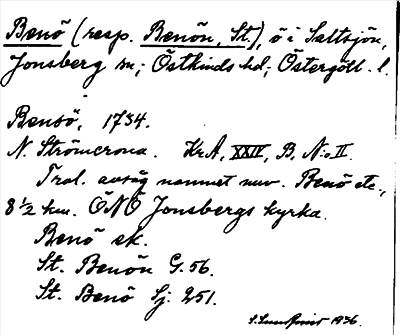 Benö (resp. Benön, St.), ö i Saltsjön,
Jonsberg sn; Östkinds hd; Östergötl. l.
Bensö, 1734.
N. Strömcrona. KrA, XXIV, B, N:o II.
Trol. avsåg namnet nuv. Benö etc.,
8 1/2 km. ÖNÖ Jonsbergs kyrka.
Benö ek.
St. Benön G. 56.
St. Benö Sj. 251.
1936.